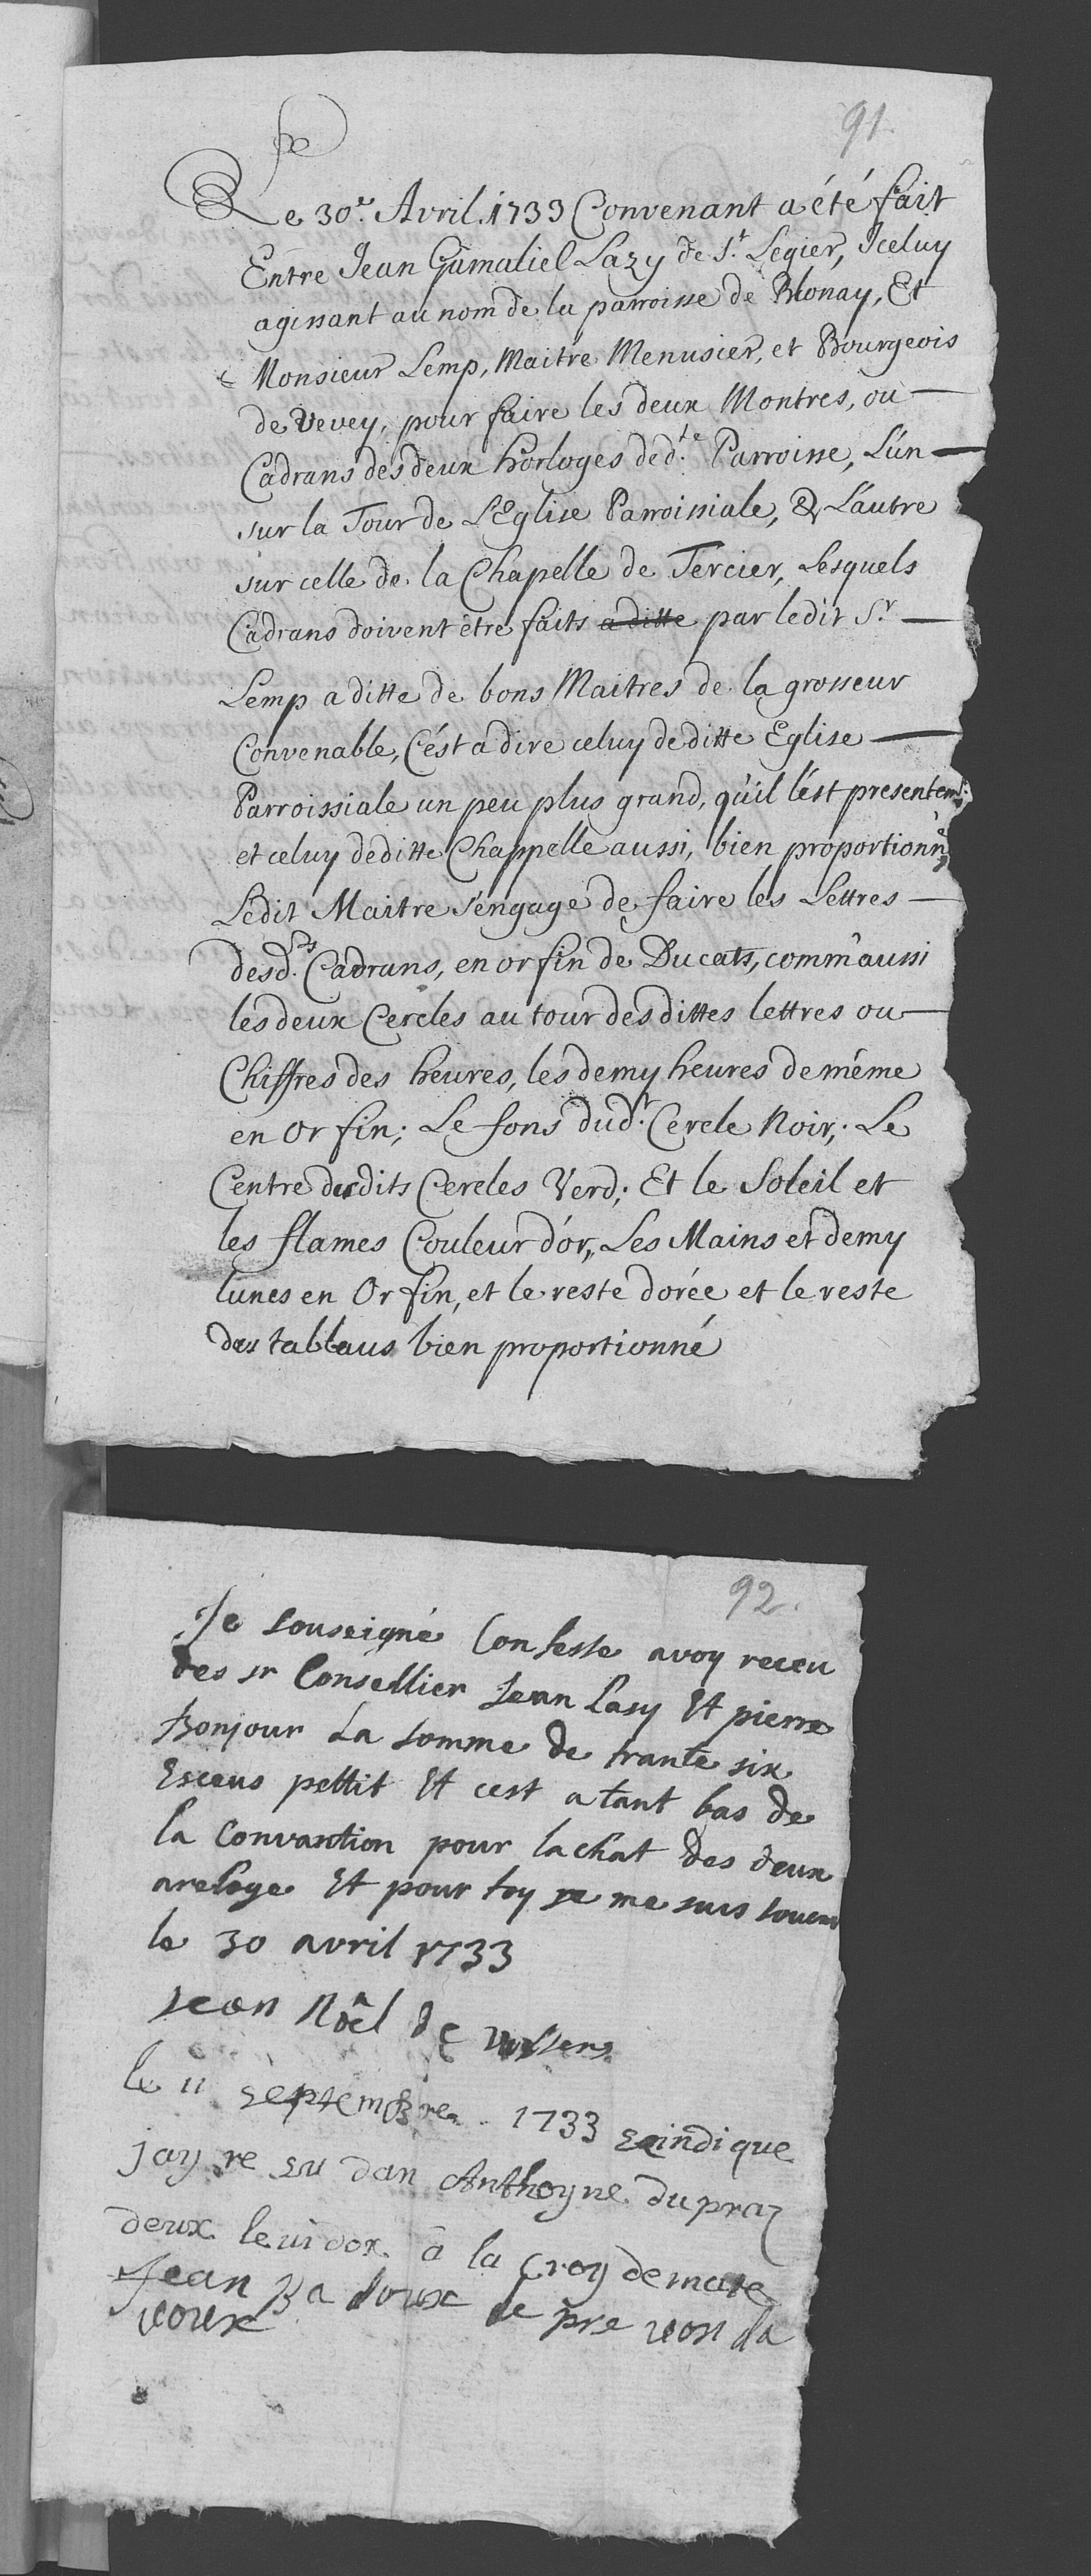 91.
Le 30.e Avril. 1733 Convenant a été fait
Entre Jean Gamaliel Lazy de S.t Legier, Iceluy
agissant au nom de la parroisse de Blonay, Et
Monsieur Lemp, Maitre Menusier, et Bourgeois
de Vevey, pour faire les deux Montres, ou —
Cadrans des deux horloges de d.te Parroisse, L'ún —
sur la Tour de L'Eglise Parroissiale, & L'autre
sur celle de la Chapelle de Tercier, Lesquels
Cadrans doivent être faits a ditte par ledit S.r —
Lemp a ditte de bons Maitres de la grosseur
Convenable, C'ést a dire celuy de ditte Eglise —
Parroissiale un peu plus grand, qu'il l'ést presentem.t
et celuy de ditte Chappelle aussi, bien proportionné
Ledit Maitre s'engage de faire les Lettres —
desd.ts Cadrans, en or fin de Ducats, comm'aussi
les deux Cercles au tour des dittes lettres ou —
Chiffres des heures, les demy heures de même
en Or fin; Le fons dud.t Cercle Noir; Le
Centre desdits Cercles Verd; Et le Soleil et
les flames Couleur d'ór, Les Mains et demy
lunes en Or fin, et le reste dorée et le reste
des tablaus bien proportionné
92.
Je souseigné Confesse avoy receu
des sr Consellier Jean Lasy Et pierre
Bonjour La somme de trante six
Esceus pettit Et cest a tant bas de
la Convantion pour lachat des deux
areloge Et pour foy je me suis
le 30 avril 1733
Jean Nöel de
le 11 septembre 1733
jay re su dan Anthoyne dupraz
deux le ui dor a la Croy de mate
Jean